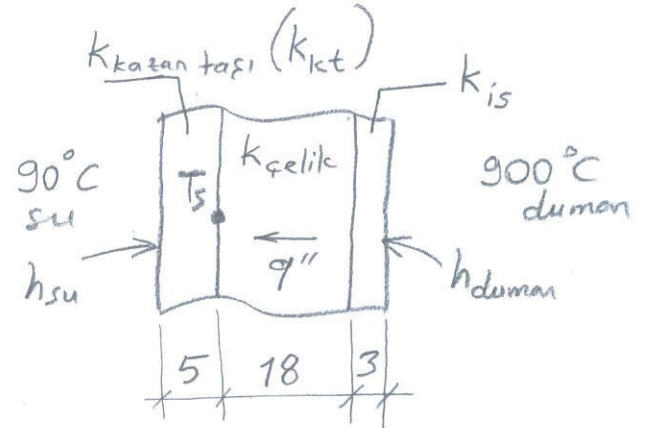 k kazan taşı (k kt)
k is
90°C
su
h su
Ts
k çelik
q"
900°C
duman
h duman
5 18 3